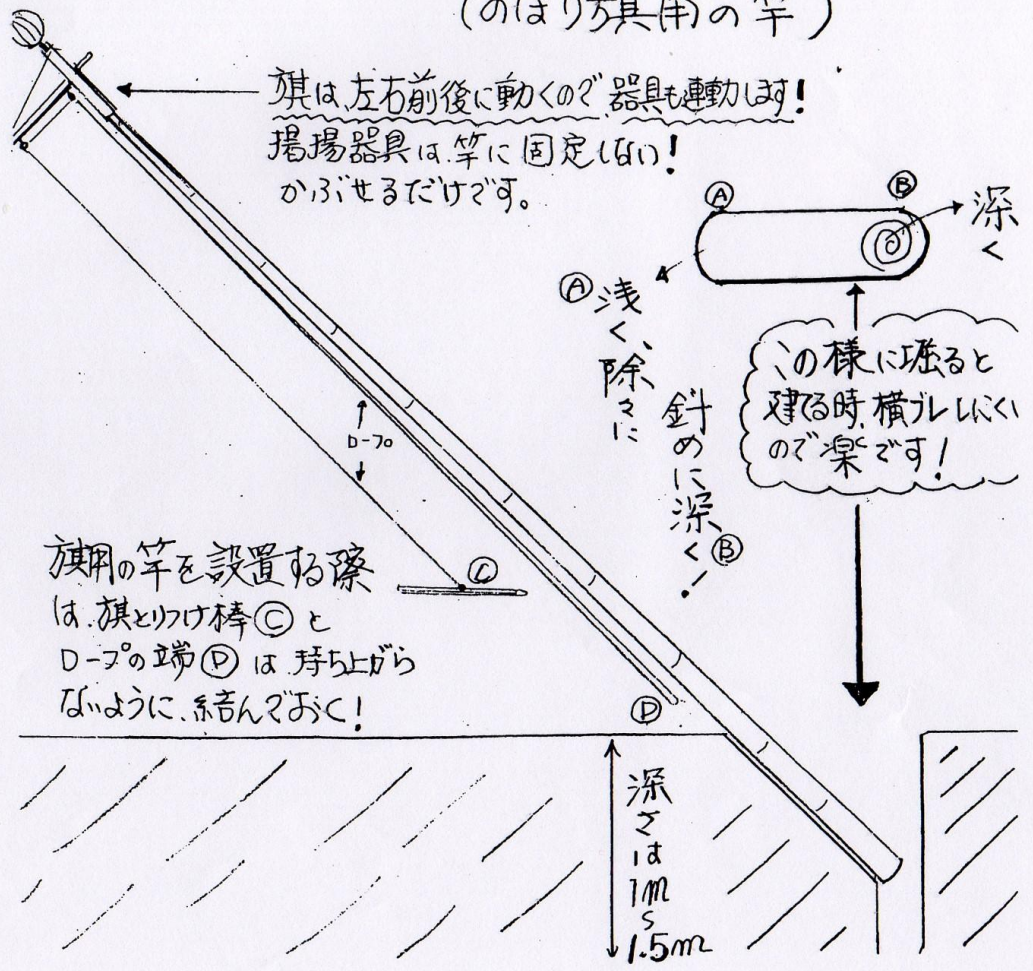 (のぼり旗用の竿)
旗は、左右前後に動くので、器具も連動します！
揚揚器具は、竿に固定しない！
かぶせるだけです。
Ⓐ
Ⓑ
深く
Ⓐ浅く、除々に
斜めに深くⒷ！
この様に堀ると
建てる時、横ブレしにくい
ので楽です！
ロープ
Ⓒ
旗用の竿を設置する際
は、旗とりつけ棒Ⓒと
ロープの端Ⓓは、持ち上がら
ないように、結んでおく！
Ⓓ
深さは1m〜1.5m